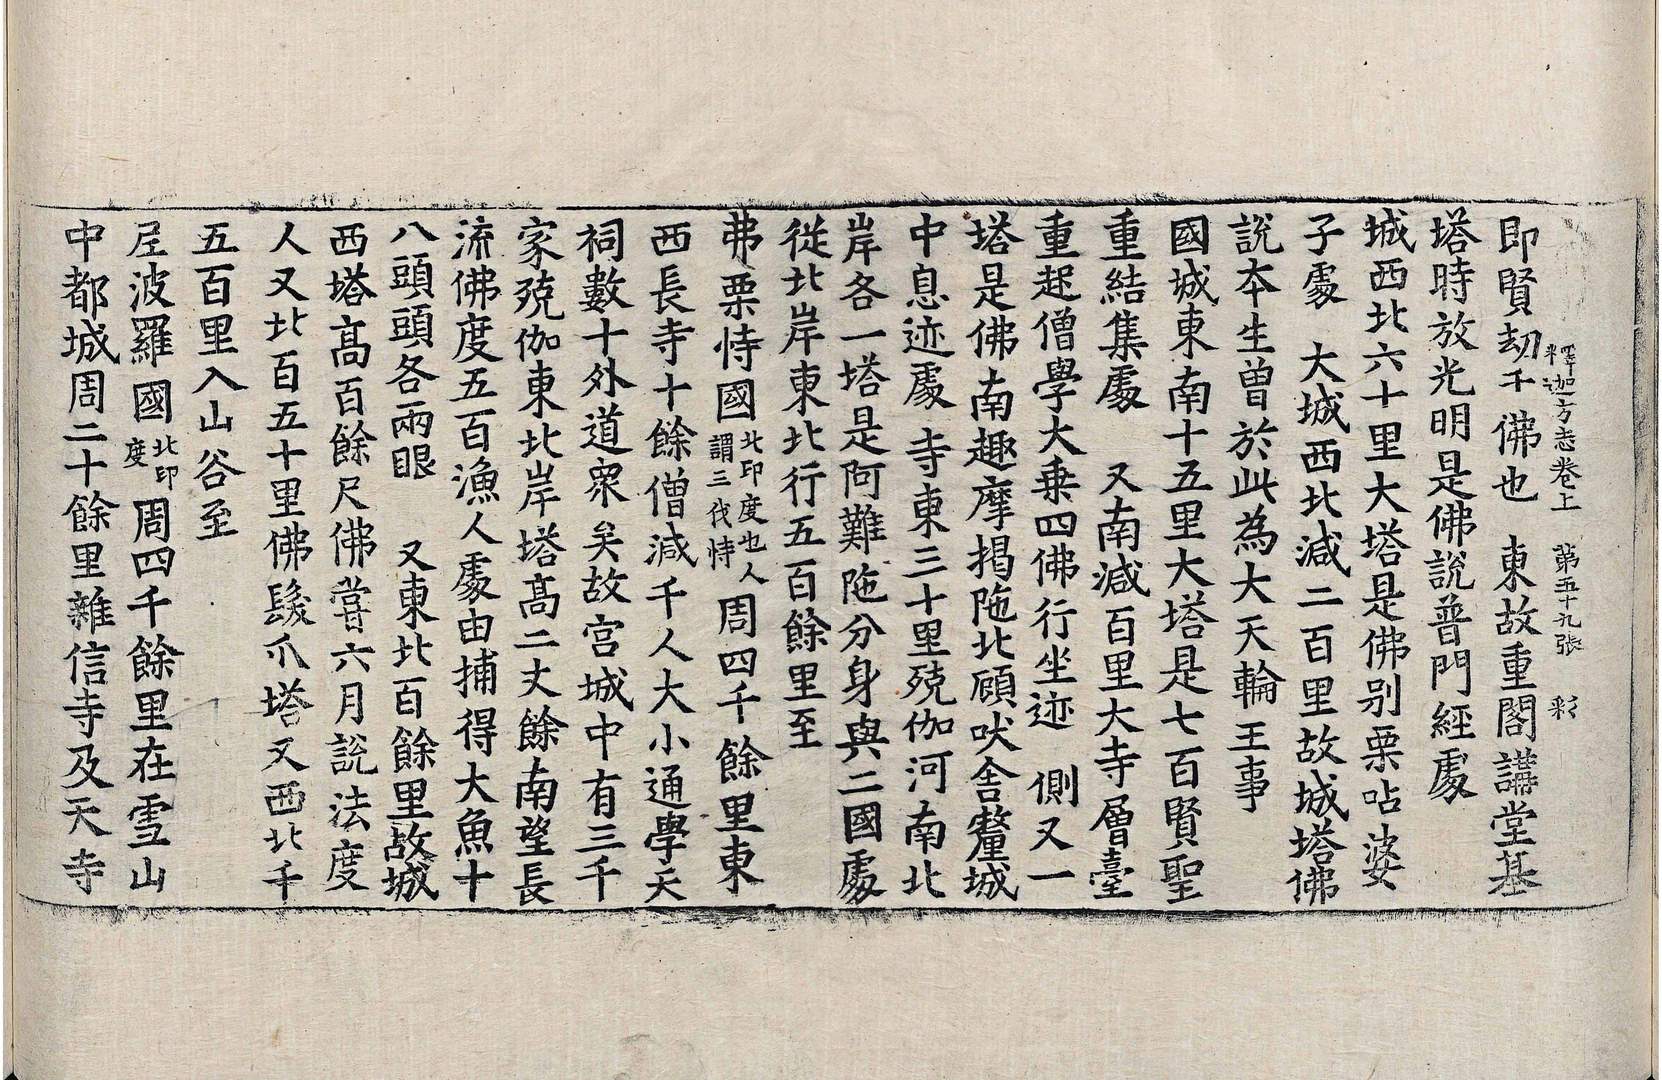 釋迦方志卷上 第五十九張 彩
即賢劫千佛也 東故重閣講堂基
塔時放光明是佛說普門經處
城西北六十里大塔是佛別栗呫婆
子處 大城西北減二百里故城塔佛
說本生曾於此為大天輪王事
國城東南十五里大塔是七百賢聖
重結集處 又南減百里大寺層臺
重起僧學大乗四佛行坐迹 側又一
塔是佛南趣摩揭陁北頋吠舍釐城
中息迹處 寺東三十里殑伽河南北
岸各一塔是阿難陁分身與二國處
從北岸東北行五百餘里至
弗栗恃國北印度也人謂三伐恃周四千餘里東
西長寺十餘僧減千人大小通學天
祠數十外道衆矣故宮城中有三千
家殑伽東北岸塔高二丈餘南望長
流佛度五百漁人處由捕得大魚十
八頭頭各兩眼 又東北百餘里故城
西塔高百餘尺佛嘗六月說法度
人又北百五十里佛髮爪塔又西北千
五百里入山谷至
尼波羅國北印度周四千餘里在雪山
中都城周二十餘里雜信寺及天寺